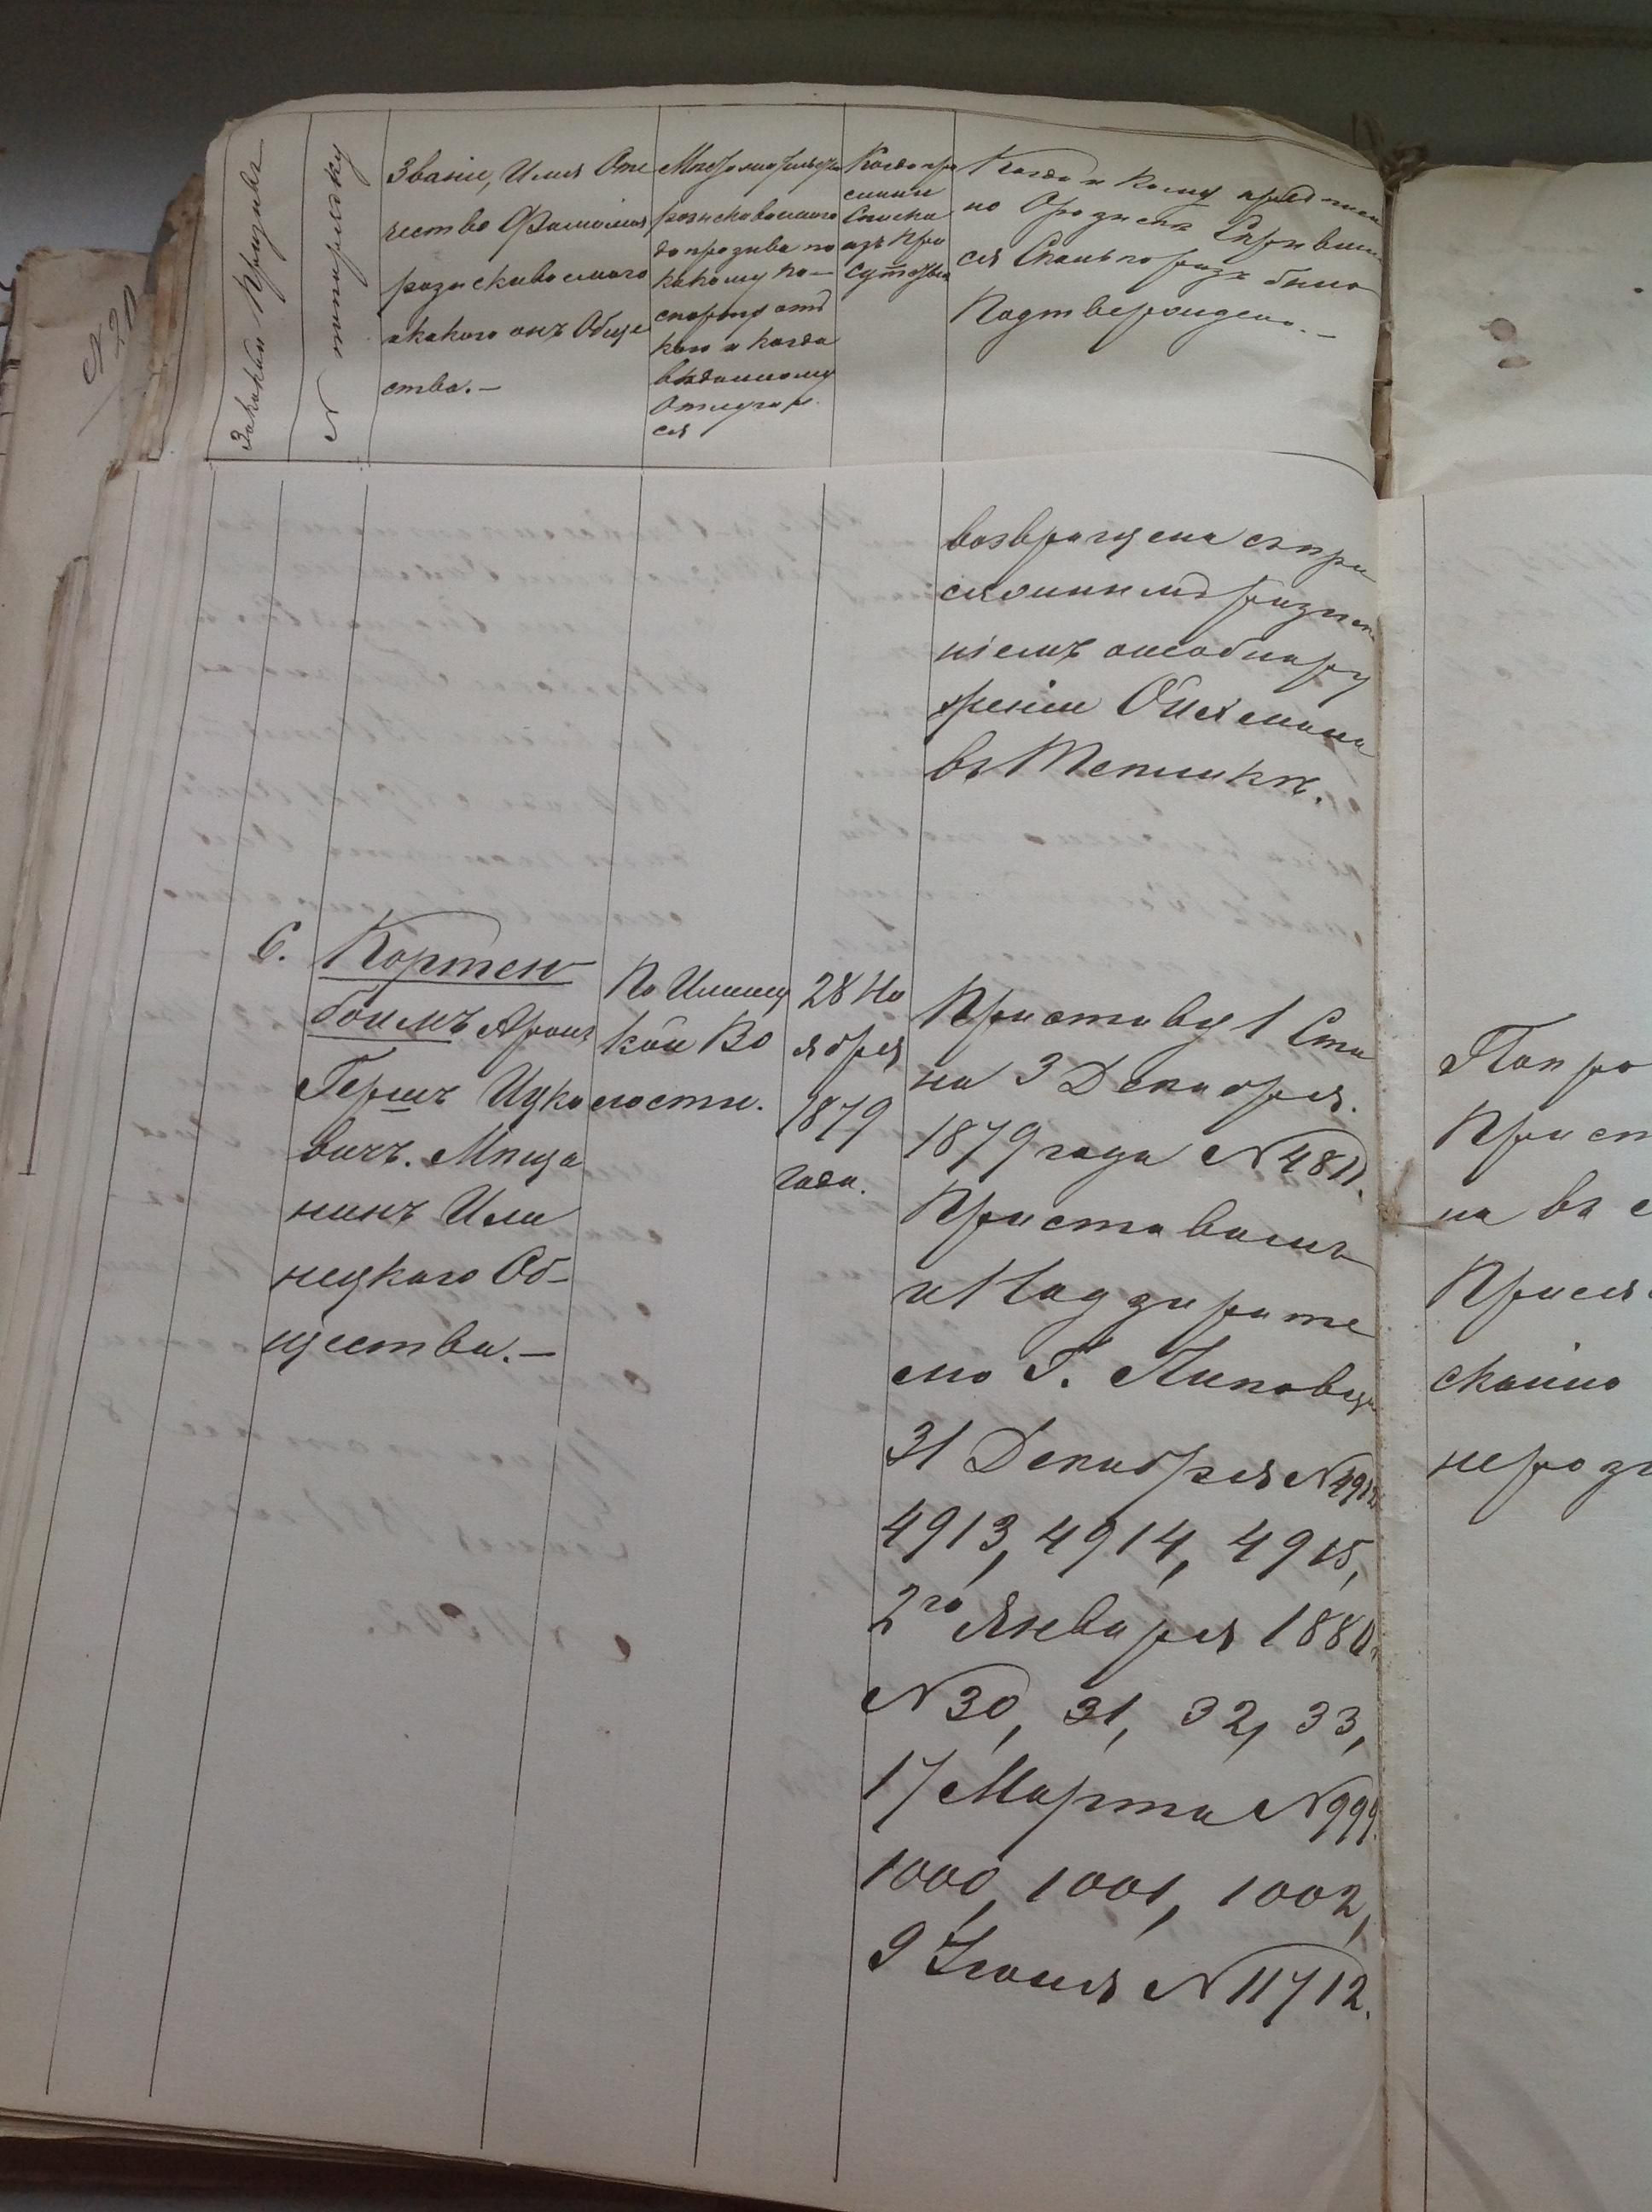 За какой призывъ
№ по порядку
Званіе, Имя Оте
чество Фамилія
розыскиваемаго
и какого онъ Обще
ства.—
Место жительства
розыскиваемаго
до призыва по
какому па-
спорту отъ
кого и когда
выданному
Отлучал
ся
Когда при
сланы
Списки
изъ При
сутствія
Когда и Кому предписа
но О розыске Скрывши
ся Сколько разъ было
Подтверждено.—
возвращена съ при
сяжнымъ розыска
ніемъ онеобнару
женіи
въ Теплике.
6.
Кортен
боимъ Аронъ
Гершъ Ицко
вичъ. Мѣща
нинъ Или
нецкаго Об-
щества.—
По Илинец
кой Во
лости.
28 Но
ября
1879
года.
Приставу 1 Ста
на 3 Декабря.
1879 года №
Приставамъ
и Надзирате
лю Г. Липовца
31 Декабря №
4913, 4914, 4915,
2го Января 1880
№ 30, 31, 32, 33,
17 Марта № 999.
1000, 1001, 1002,
9 Іюня № 11712.
Попро
Прист
на въ с
Прися
скано
нероз